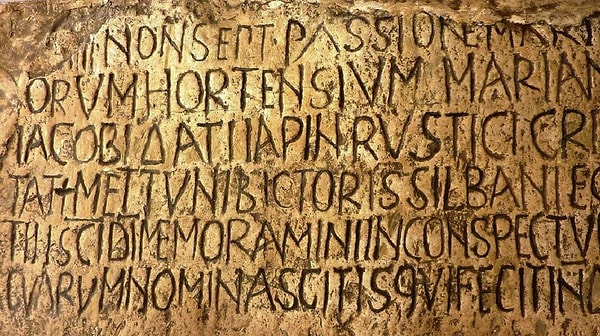 IIII NON SEPT PASSIONE MART
ORVM HORTENSIVM MARIAN
IACOBI DATI IAPIN RVSTICI CRI
TAT METTVNI BICTORIS SILBANI EG
TII SCI DI MEMORAMINI IN CONSPECTV
QVARVM NOMINA SCITIS QVI FECIT IND